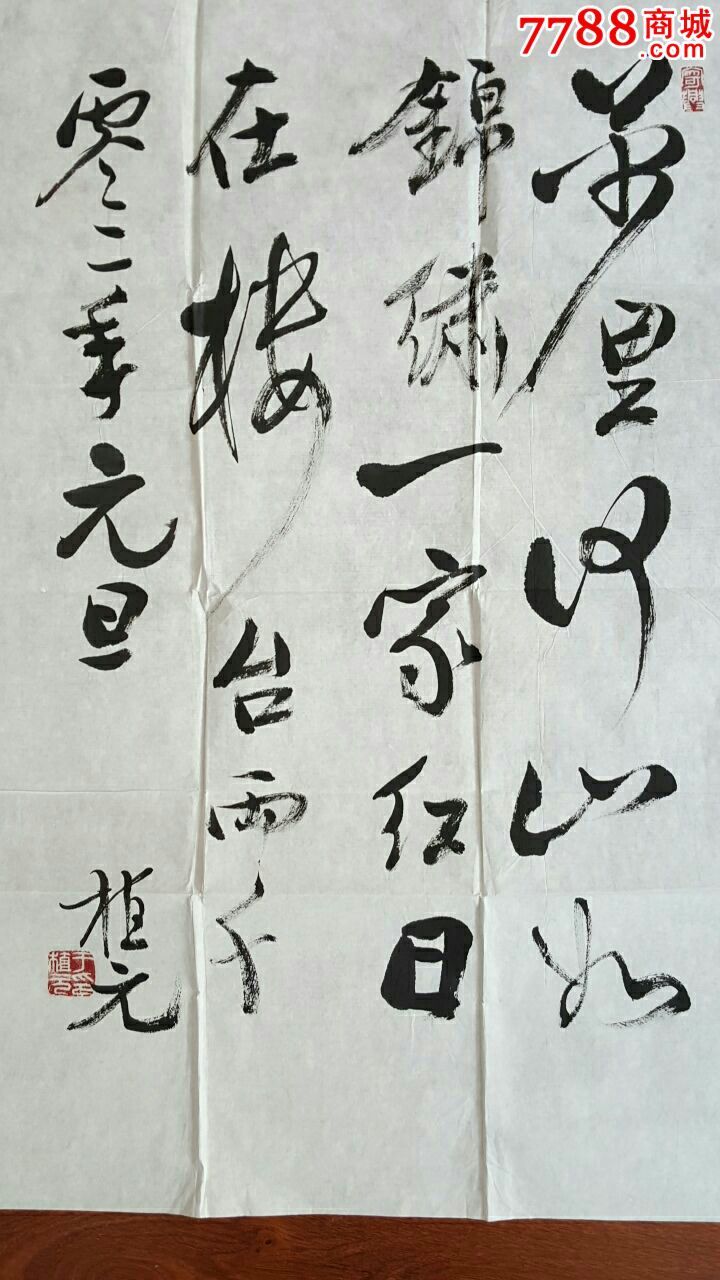 万里河山如
錦绣一家红日
在楼台雨千
零二年元旦
植元
于植元印
7788商城
.com